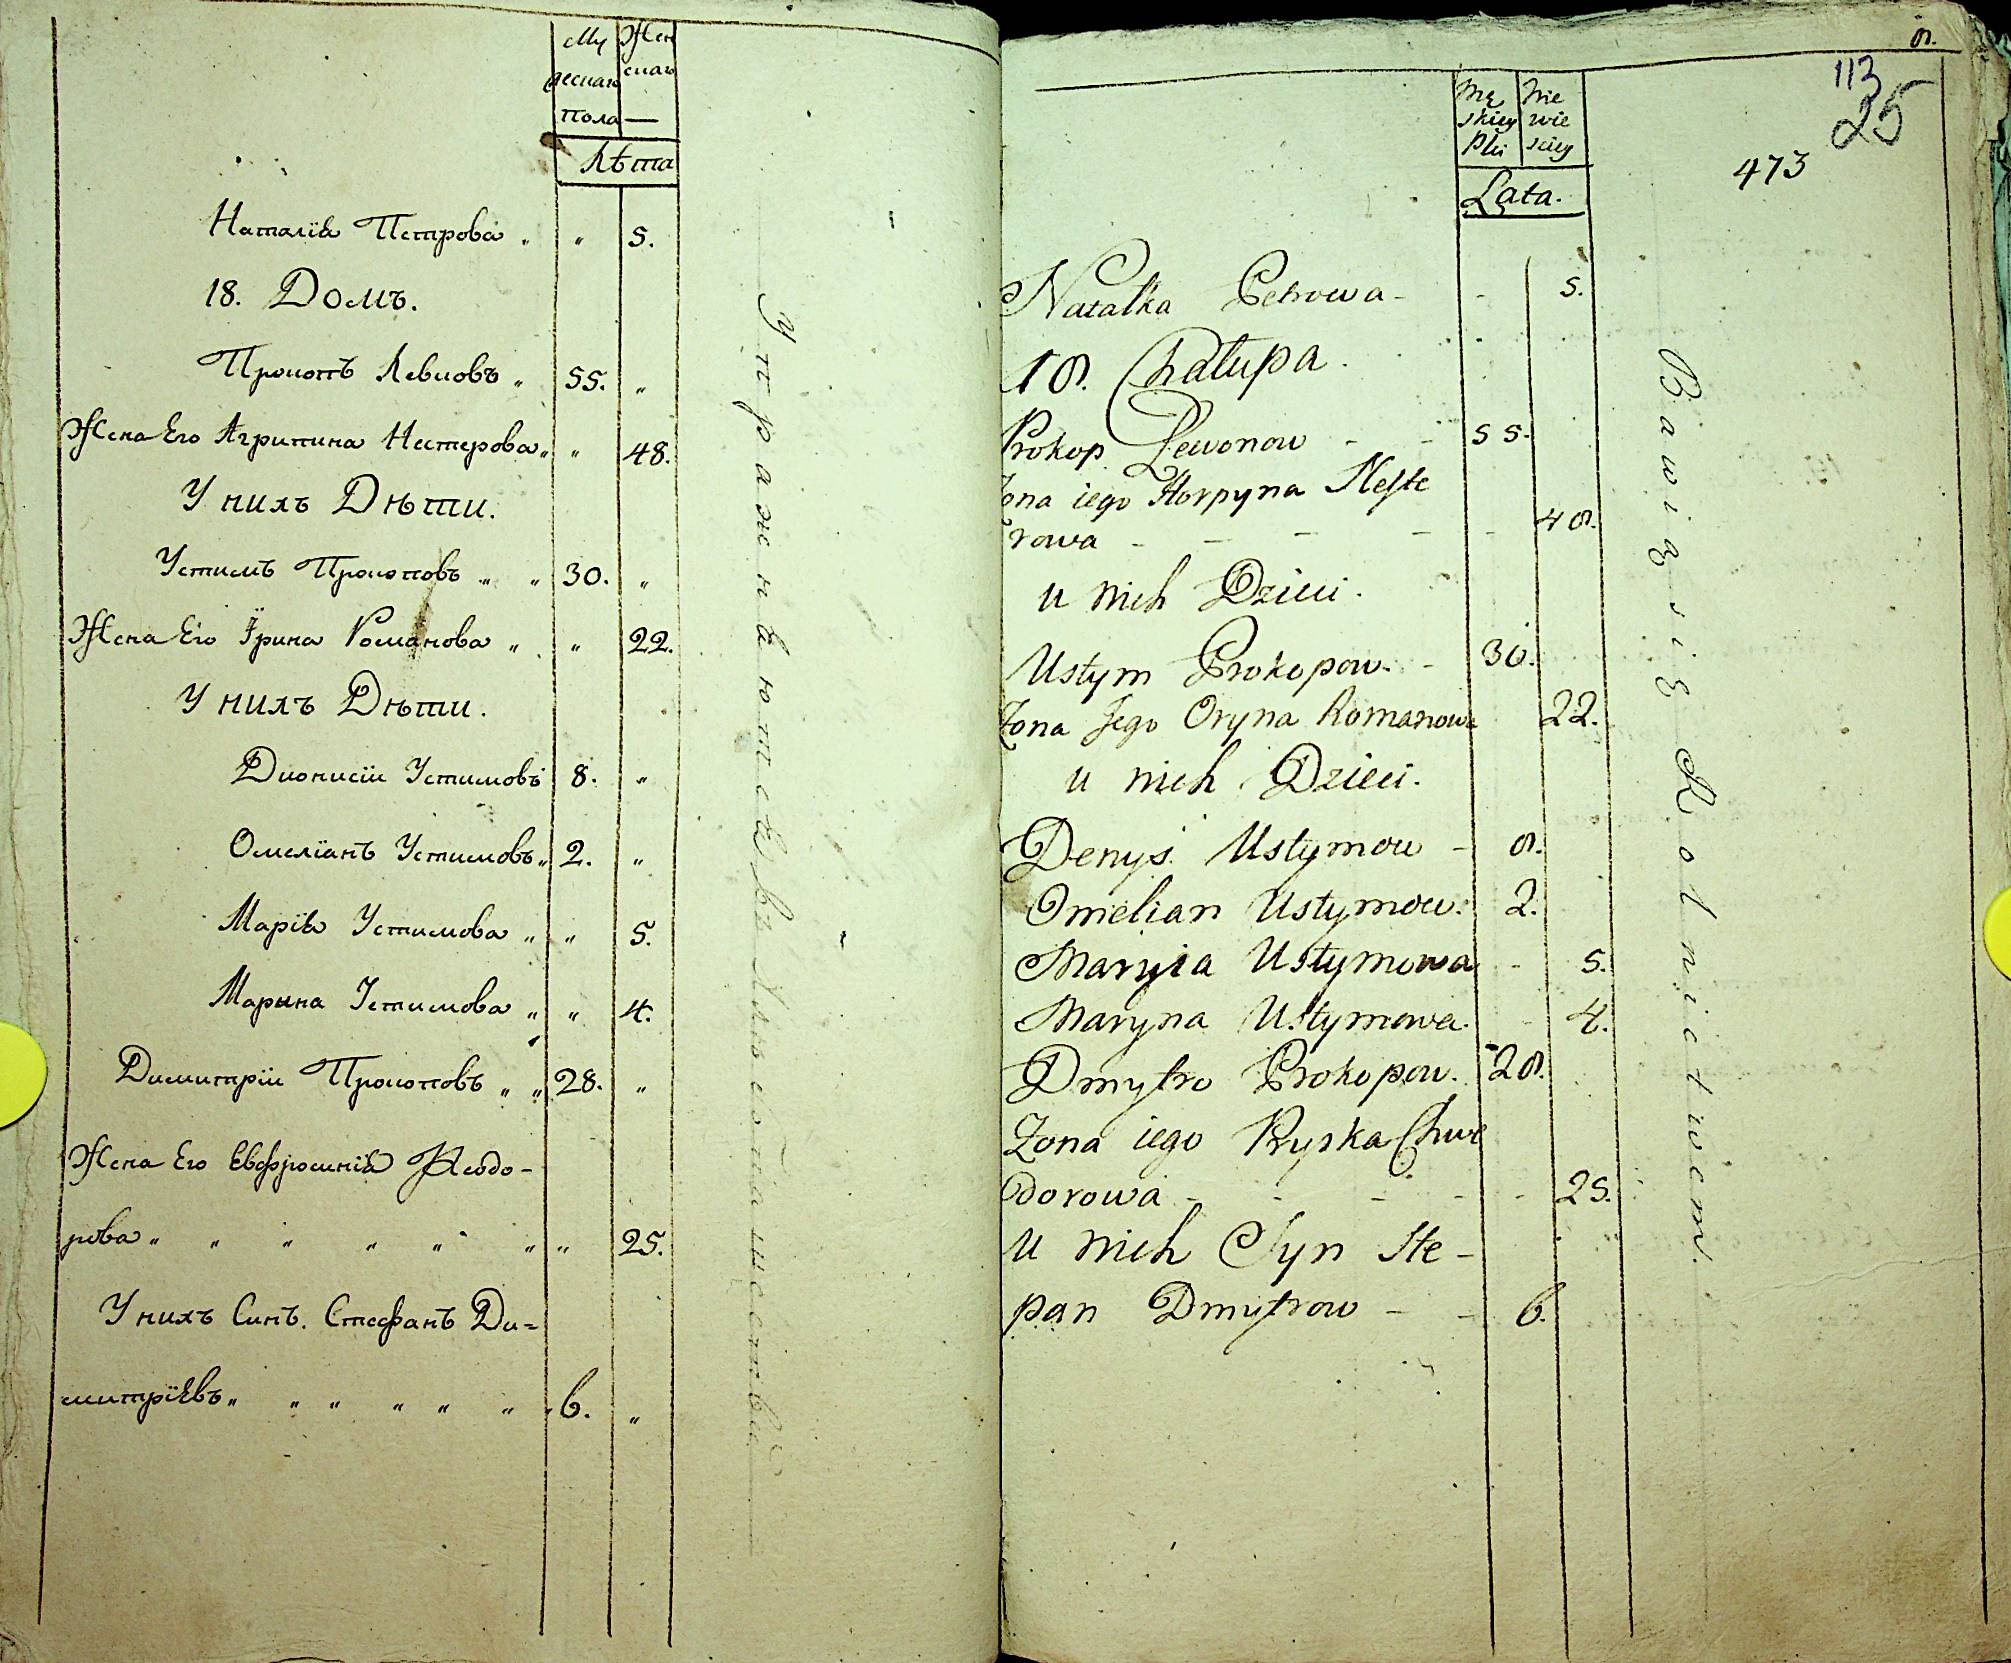 Мужескаго пола
Женскаго —
Лѣта
Наталія Петрова „ „ 5.
18. Домъ.
Прокопъ Левковъ „ 55. „
Жена Его Агрипина Нестерова „ „ 48.
У нихъ Дѣти.
Устимъ Прокоповъ „ „ 30. „
Жена Его Ірина Романова „ „ 22.
У нихъ Дѣти.
Дионисіи Устимовъ 8. „
Омеліанъ Устимовъ „ 2. „
Марія Устимова „ „ 5.
Марина Устимова „ „ 4.
Димитріи Прокоповъ „ „ 28. „
Жена Его Евфросинія Ѳеодо-
рова „ „ „ „ „ „ „ 25.
У нихъ Синъ. Стефанъ Ди=
митріевъ „ „ „ „ „ „ „ 6. „
Упражняются въ Хлѣбопашествѣ
8.
113
25
473
Mę
skiey
Płci
Nie
wie
sciey
Lata.
Natalka Petrowa - - 5.
18. Chałupa.
Prokop Lewonow - - 55.
Zona iego Horpyna Neste
rowa - - - - - 48.
u nich Dzieci.
Ustym Prokopow. - 30.
Zona Jego Oryna Romanowa 22.
u nich Dzieci.
Denys Ustymow - 8.
Omelian Ustymow. 2.
Maryia Ustymowa - 5.
Maryna Ustymowa. - 4.
Dmytro Prokopow. 28.
Zona iego Pryska Chwe
dorowa - - - - - 25.
u nich Syn Ste-
pan Dmytrow - - 6.
Bawią się Rolnictwem.